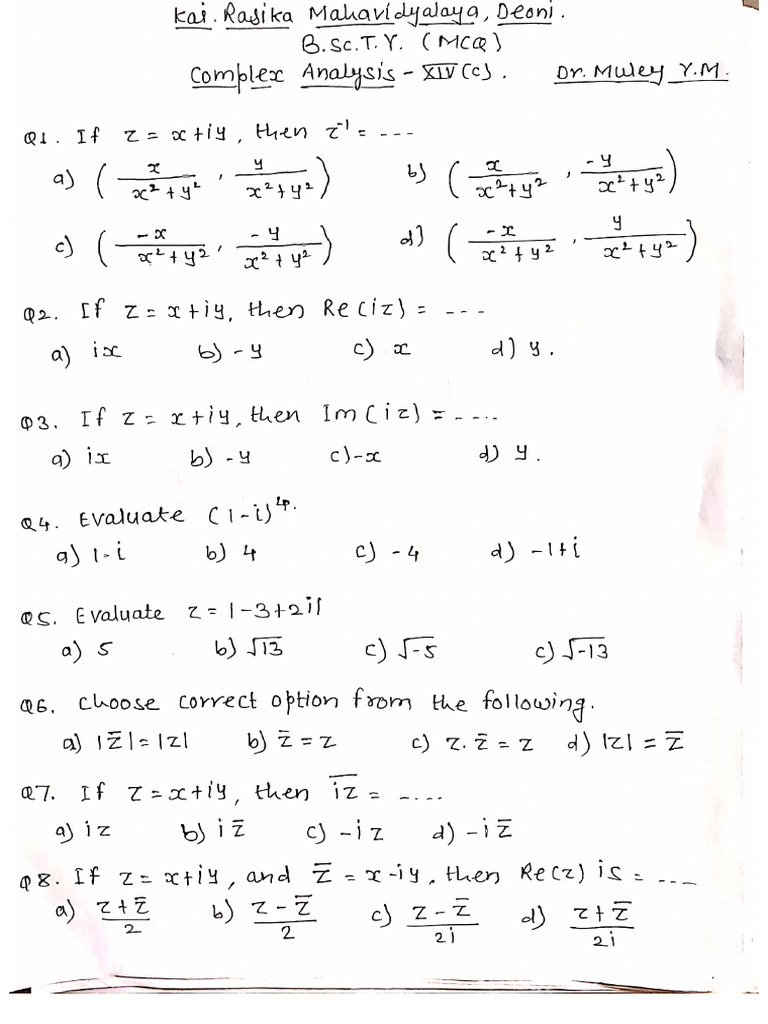 Kai. Rasika Mahavidyalaya, Deoni.
B.Sc.T.Y. (MCQ)
Complex Analysis - XIV (C). Dr. Muley Y.M.
Q1. If z = x+iy, then z⁻¹ = ---
a) (x/(x²+y²), y/(x²+y²)) b) (x/(x²+y²), -y/(x²+y²))
c) (-x/(x²+y²), -y/(x²+y²)) d) (-x/(x²+y²), y/(x²+y²))
Q2. If z = x+iy, then Re(iz) = ---
a) ix b) -y c) x d) y.
Q3. If z = x+iy, then Im(iz) = -...
a) ix b) -y c) -x d) y.
Q4. Evaluate (1-i)⁴.
a) 1-i b) 4 c) -4 d) -1+i
Q5. Evaluate z = |-3+2i|
a) 5 b) √13 c) √-5 c) √-13
Q6. choose correct option from the following.
a) |z̄| = |z| b) z̄ = z c) z.z̄ = z d) |z| = z̄
Q7. If z = x+iy, then \overline{iz} = -...
a) iz b) iz̄ c) -iz d) -iz̄
Q8. If z = x+iy, and z̄ = x-iy, then Re(z) is = ---
a) (z+z̄)/2 b) (z-z̄)/2 c) (z-z̄)/2i d) (z+z̄)/2i